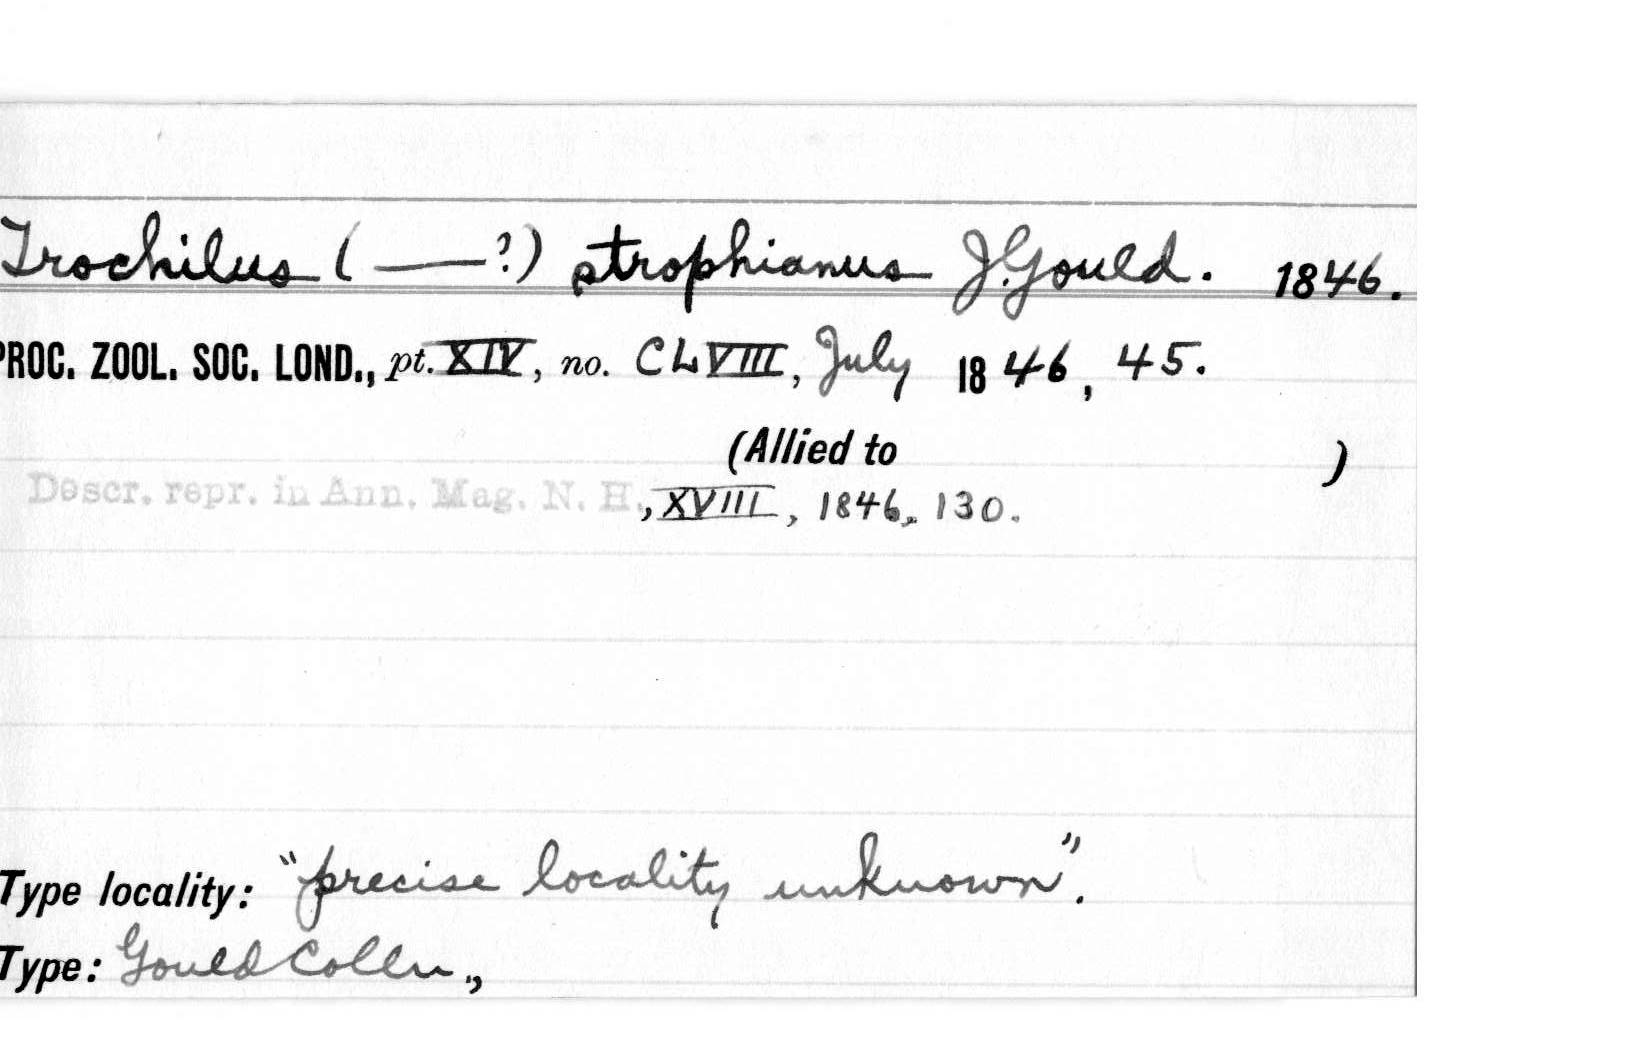 Trochilus (——?) strophianus J. Gould. 1846.
PROC. ZOOL. SOC. LOND., pt. XIV, no. CLVIII, July 1846, 45.
(Allied to )
Descr. repr. in Ann. Mag. N. H., XVIII, 1846, 130.
Type locality: "precise locality unknown".
Type: Gould Colln.,